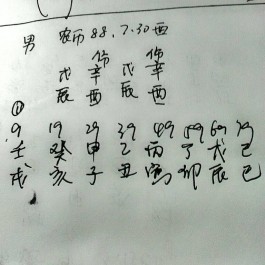 男 农历88.7.30酉
伤 伤
戊 辛 戊 辛
辰 酉 辰 酉
①
9 19 29 39 49 59 69 79
壬 癸 甲 乙 丙 丁 戊 己
戌 亥 子 丑 寅 卯 辰 巳